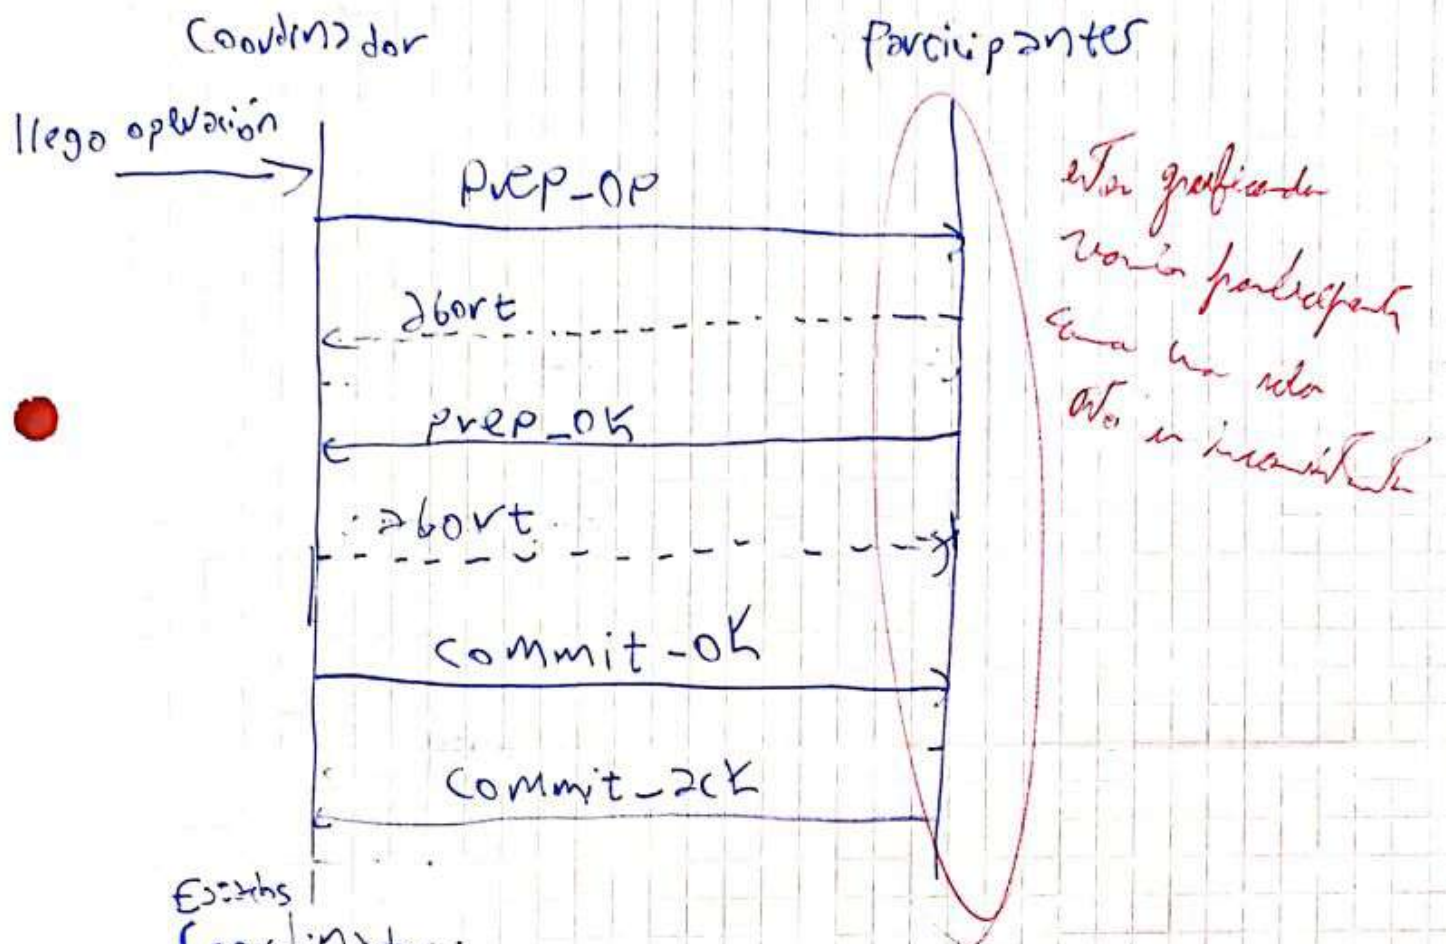 Coordinador
Participantes
llego operación
prep_op
abort
prep_ok
abort
commit_ok
commit_ack
estas graficando
varios participantes
como uno solo
esto es inconsistente